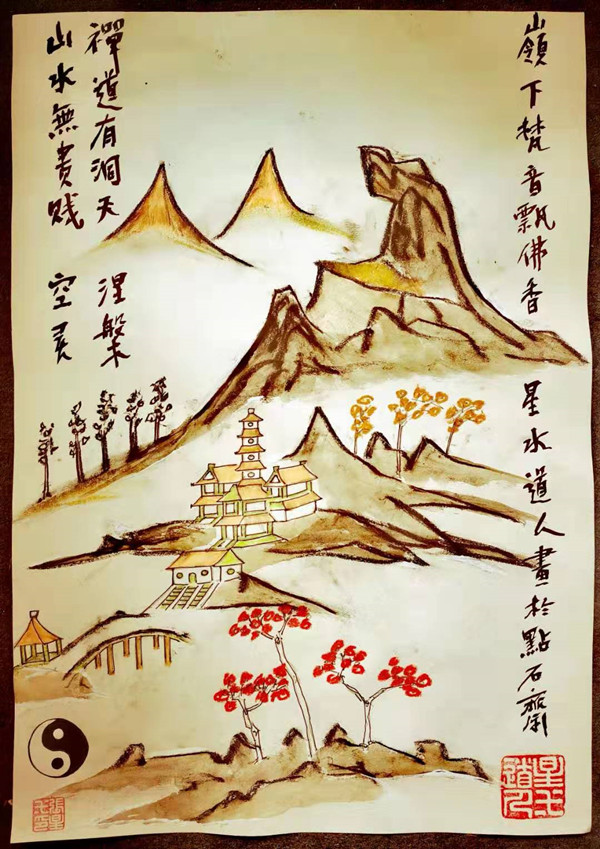 嶺下梵音飄佛香 星水道人畫於點石齋
禪道有洞天 涅槃
山水無貴贱 空灵
星水道人